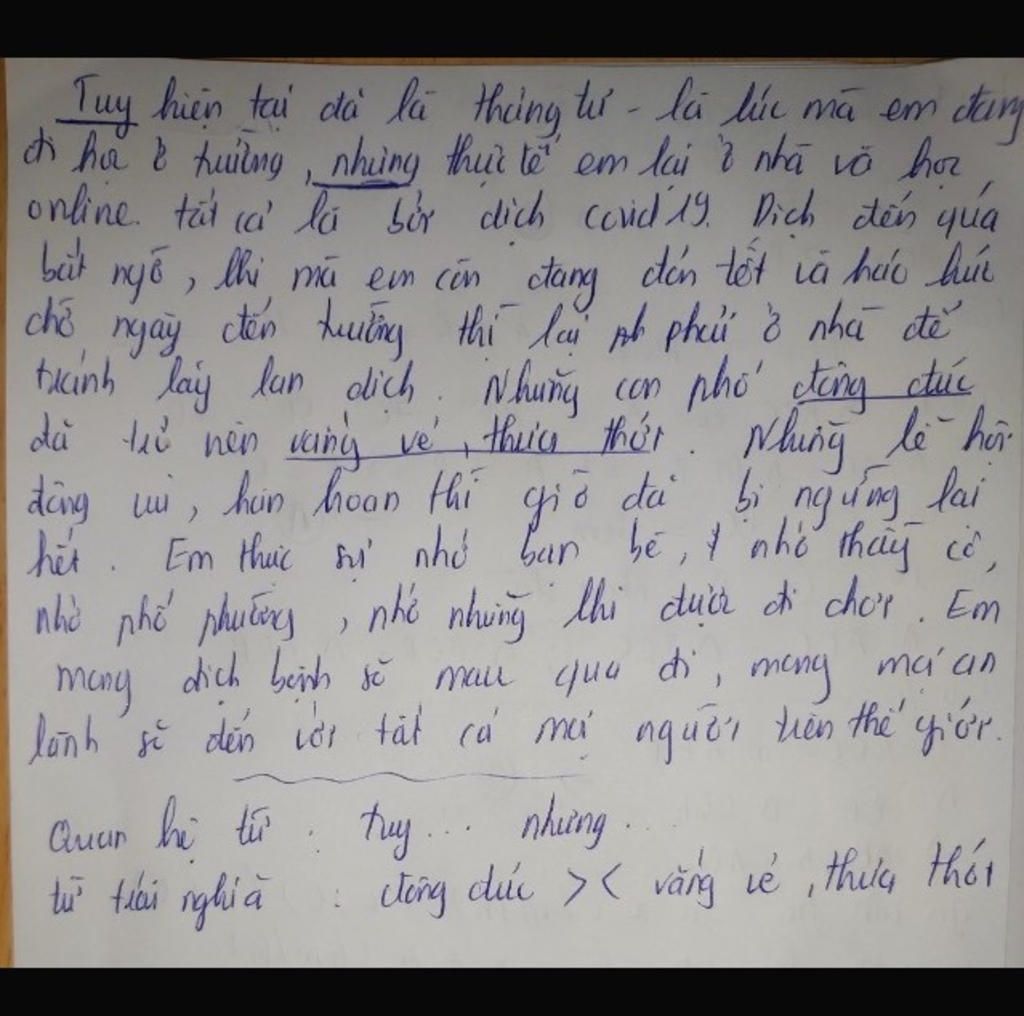 Tuy hiện tại đã là tháng tư - là lúc mà em đang
đi học ở trường, nhưng thực tế em lại ở nhà và học
online. tất cả là bởi dịch covid 19. Dịch đến quá
bất ngờ, khi mà em còn đang đón tết và háo hức
chờ ngày đến trường thì lại phải ở nhà để
tránh lây lan dịch. Những con phố đông đúc
đã trở nên vắng vẻ, thưa thớt. Những lễ hội
đông vui, hân hoan thì giờ đã bị ngừng lại
hết. Em thực sự nhớ bạn bè, nhớ thầy cô,
nhớ phố phường, nhớ những khi được đi chơi. Em
mong dịch bệnh sẽ mau qua đi, mong mọi an
lành sẽ đến với tất cả mọi người trên thế giới.
Quan hệ từ : tuy... nhưng...
từ trái nghĩa : đông đúc >< vắng vẻ, thưa thớt